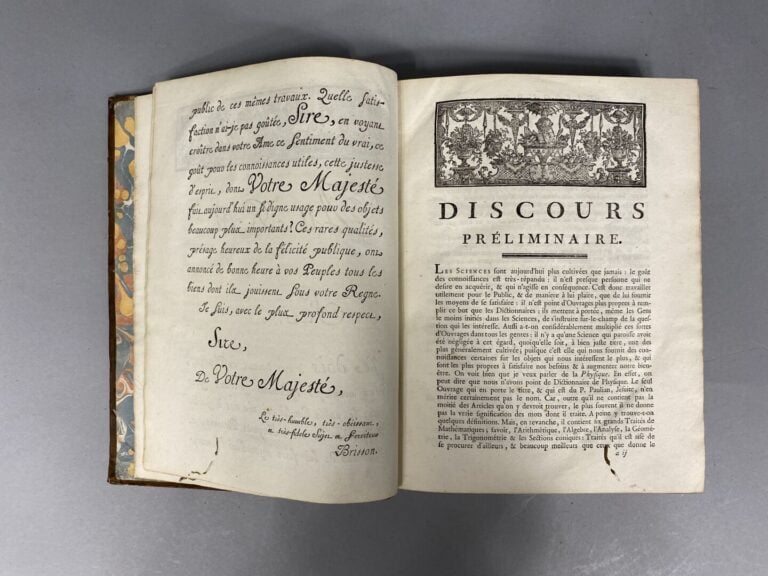 public de ces mêmes travaux. Quelle satis-
faction n'ai-je pas goûtée, Sire, en voyant
croître dans votre Ame ce Sentiment du vrai, ce
goût pour les connoissances utiles, cette justesse
d'esprit, dont Votre Majesté
fait aujourd'hui un si digne usage pour des objets
beaucoup plus importants? Ces rares qualités,
présage heureux de la félicité publique, ont
annoncé de bonne heure à vos Peuples tous les
biens dont ils jouissent Sous votre Regne.
Je Suis, avec le plus profond respect,
Sire,
De Votre Majesté,
Le très-humble, très-obéissant,
et très-fidele Sujet et Serviteur
Brisson.
DISCOURS
PRÉLIMINAIRE.
LES SCIENCES sont aujourd'hui plus cultivées que jamais : le goût
des connoissances est très-répandu ; il n'est presque personne qui ne
desire en acquérir, & qui n'agisse en conséquence. C'est donc travailler
utilement pour le Public, & de maniere à lui plaire, que de lui fournir
les moyens de se satisfaire : il n'est point d'Ouvrages plus propres à rem-
plir ce but que les Dictionnaires ; ils mettent à portée, même les Gens
le moins initiés dans les Sciences, de s'instruire sur-le-champ de la ques-
tion qui les intéresse. Aussi a-t-on considérablement multiplié ces sortes
d'Ouvrages dans tous les genres : il n'y a qu'une Science qui paroisse avoir
été négligée à cet égard, quoiqu'elle soit, à bien juste titre, une des
plus généralement cultivée ; puisque c'est elle qui nous fournit des con-
noissances certaines sur les objets qui nous intéressent le plus, & qui
sont les plus propres à satisfaire nos besoins & à augmenter notre bien-
être. On voit bien que je veux parler de la Physique. En effet, on
peut dire que nous n'avons point de Dictionnaire de Physique. Le seul
Ouvrage qui en porte le titre, & qui est du P. Paulian, Jésuite, n'en
mérite certainement pas le nom. Car, outre qu'il ne contient pas la
moitié des Articles qu'on y devroit trouver, le plus souvent il ne donne
pas la vraie signification des mots dont il traite. A peine y trouve-t-on
quelques définitions. Mais, en revanche, il contient six grands Traités de
Mathématiques ; savoir, l'Arithmétique, l'Algebre, l'Analyse, la Géomé-
trie, la Trigonométrie & les Sections coniques : Traités qu'il est aisé de
se procurer d'ailleurs, & beaucoup meilleurs que ceux que donne le
a ij